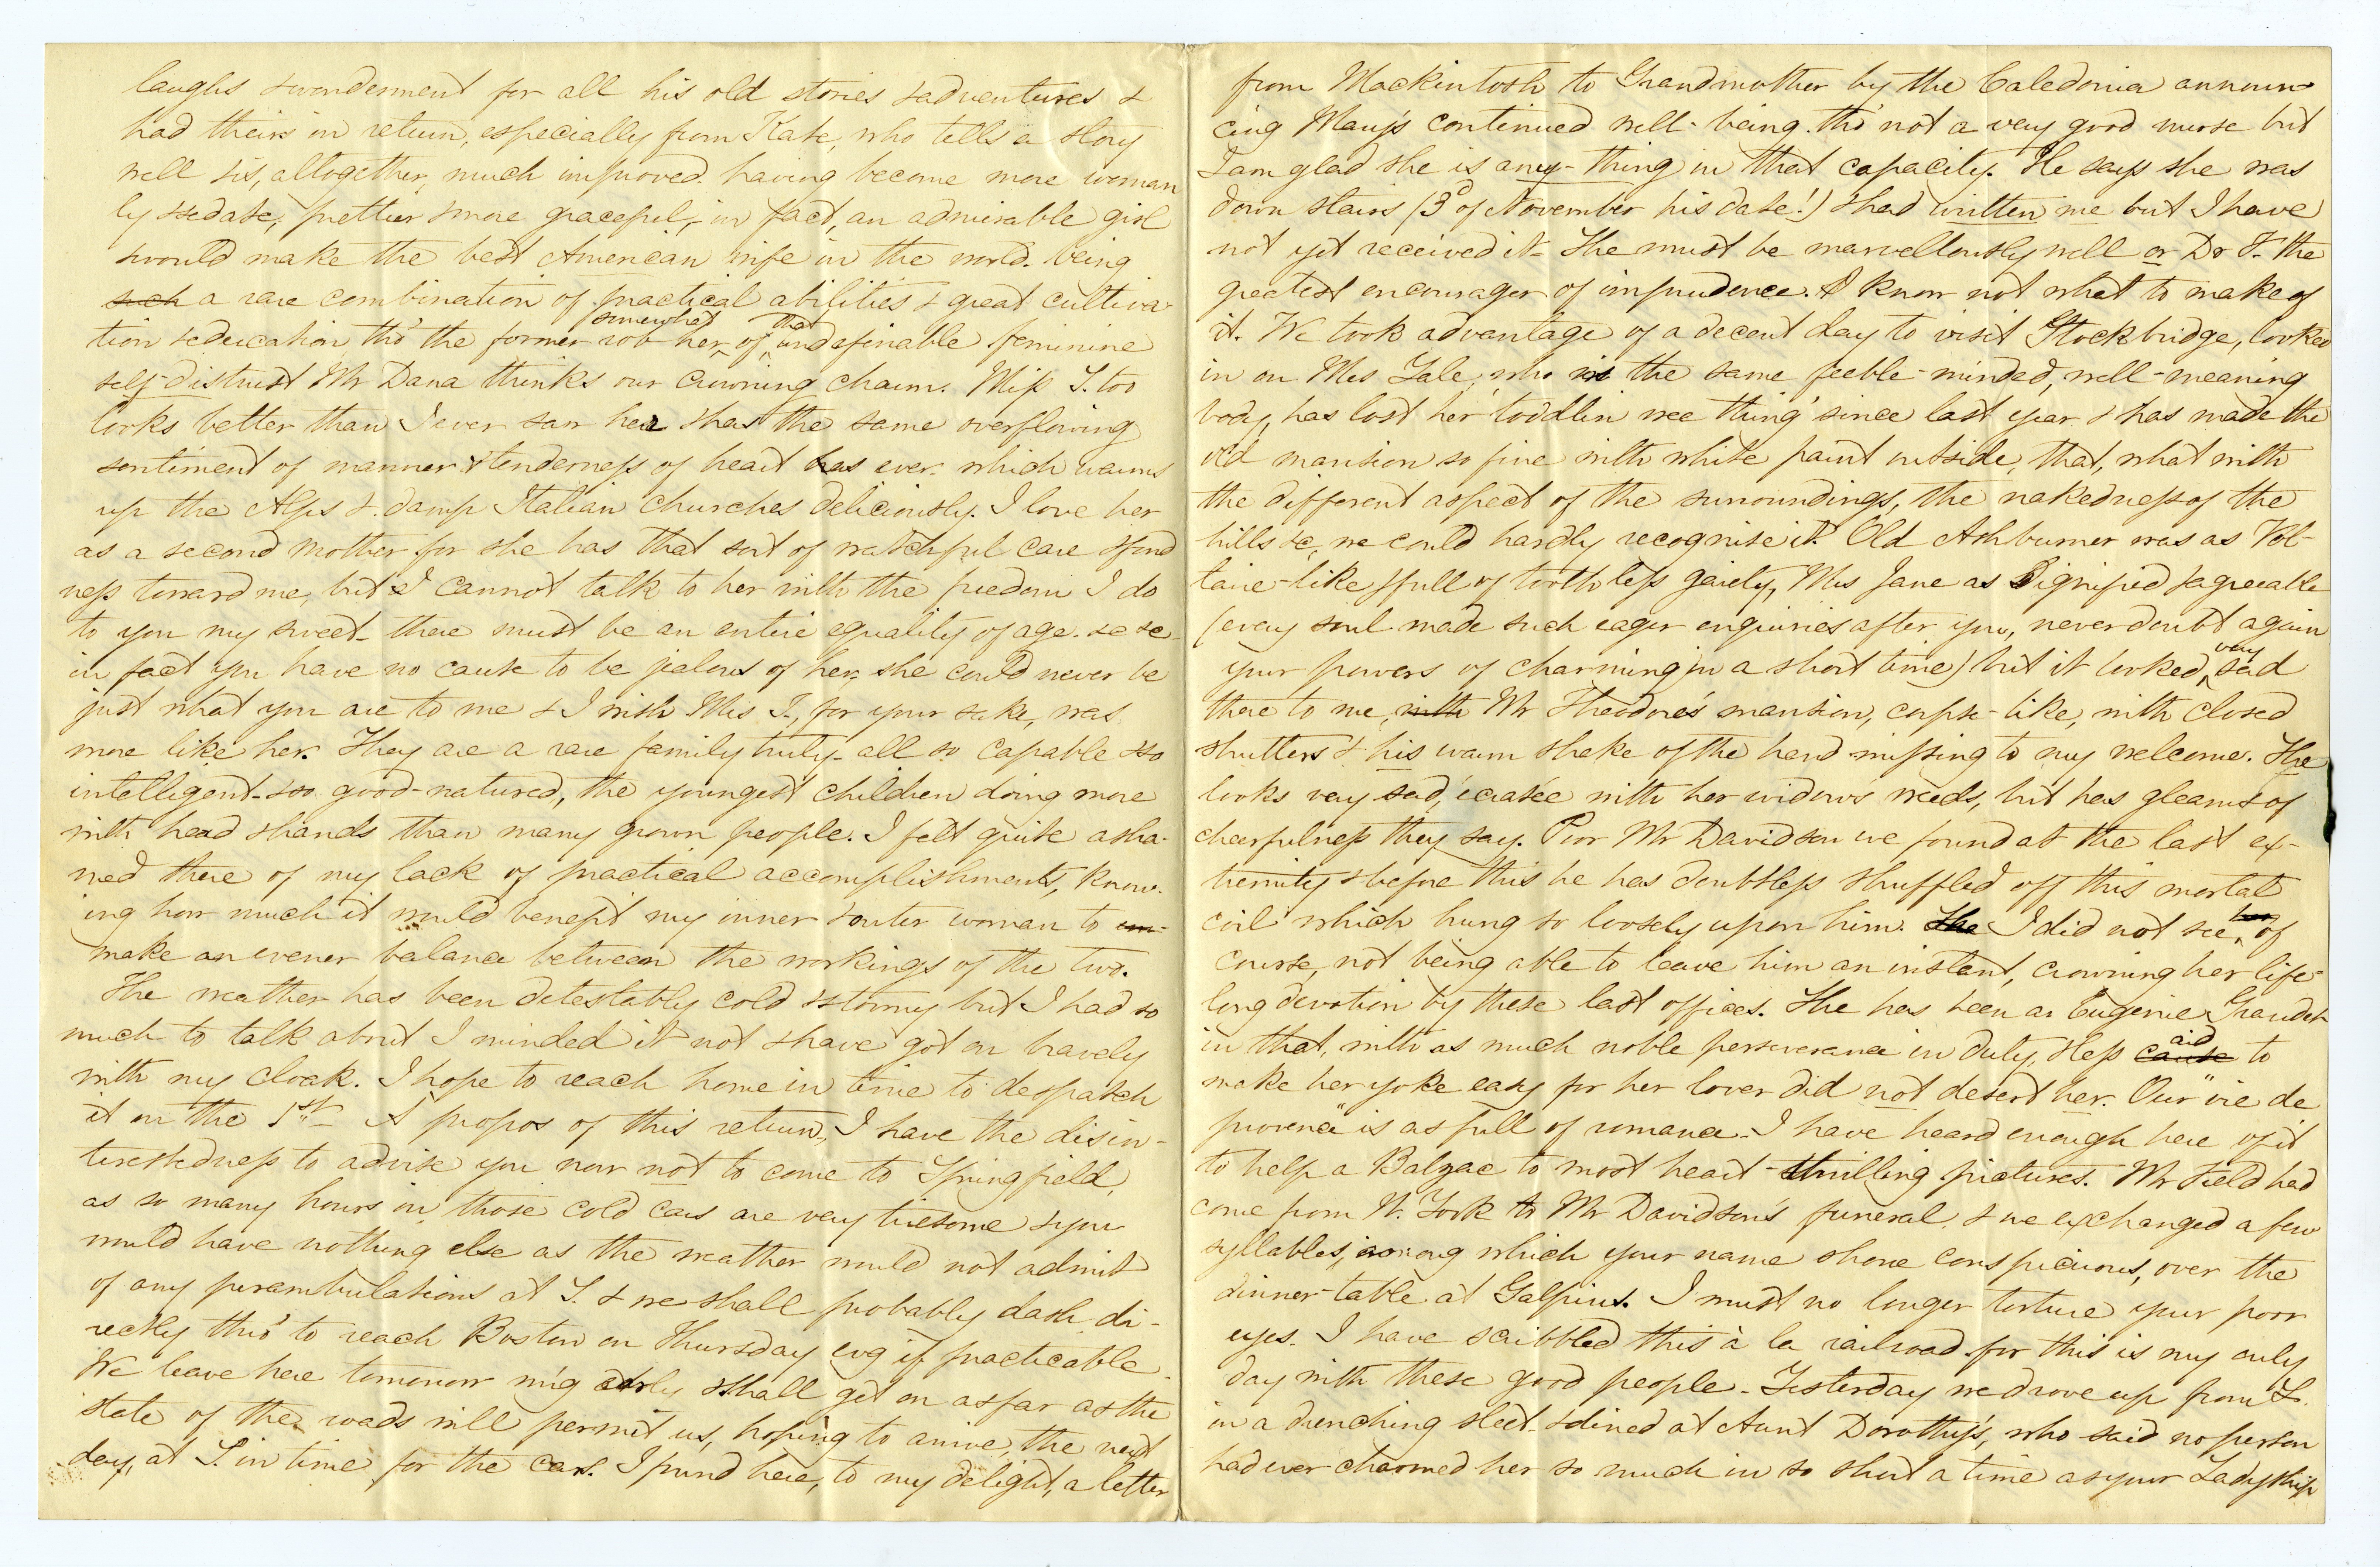 laughs & wonderment for all his old stories & adventures &
had theirs in return, especially from Kate, who tells a story
well & is, altogether, much improved. having become more woman
ly & sedate, prettier & more graceful, in fact, an admirable girl
& would make the best American wife in the world. being
such a rare combination of practical abilities & great cultiva
tion & education tho' the former rob her somewhat of that undefinable feminine
self-distrust Mr Dana thinks our crowning charm. Miss S. too
looks better than I ever saw her & has the same overflowing
sentiment of manner & tenderness of heart as ever. which warms
up the Alps & damp Italian churches deliciously. I love her
as a second mother for she has that sort of watchful care & fond
ness toward me, but I cannot talk to her with the freedom I do
to you my sweet - there must be an entire equality of age. &c &c -
in fact you have no cause to be jealous of her, she could never be
just what you are to me & I wish Mrs I., for your sake, was
more like her. They are a rare family truly - all so capable & so
intelligent - & so good-natured, the youngest children doing more
with head & hands than many grown people. I felt quite asha-
med there of my lack of practical accomplishments, know-
ing how much it would benefit my inner & outer woman to
make an evener balance between the workings of the two.
The weather has been detestably cold & stormy but I had so
much to talk about I minded it not & have got on bravely
with my cloak. I hope to reach home in time to despatch
it on the 1st - A propos of this return, I have the disin-
terestedness to advise you now not to come to Springfield,
as so many hours in those cold cars are very tiresome & you
would have nothing else as the weather would not admit
of any perambulations at S. & we shall probably dash di-
rectly thro' to reach Boston on Thursday evg if practicable -
We leave here tomorrow m'g early & shall get on as far as the
state of the roads will permit us, hoping to arrive, the next
day, at S. in time for the cars. I found here, to my delight, a letter
from Mackintosh to Grandmother by the Caledonia announ-
cing Mary's continued well-being. tho' not a very good nurse but
I am glad she is any-thing in that capacity. He says she was
down stairs (3d of November his date!) & had written me but I have
not yet received it - She must be marvellously well or Dr F. the
greatest encourager of imprudence. I know not what to make of
it. We took advantage of a decent day to visit Stockbridge, looked
in on Mrs Yale, who is the same feeble-minded, well-meaning
body, has lost her 'toddlin wee thing' since last year & has made the
old mansion so fine with white paint outside, that, what with
the different aspect of the surroundings, the nakedness of the
hills &c, we could hardly recognise it. Old Ashburner was as Vol-
taire-like & full of toothless gaiety, Mrs Jane as dignified & agreeable
(every soul made such eager enquiries after you, never doubt again
your powers of charming in a short time) but it looked very sad
there to me, with Mr Theodore's mansion, corpse-like, with closed
shutters & his warm shake of the hand missing to my welcome. She
looks very sad, écrasée with her widow's weeds, but has gleams of
cheerfulness they say. Poor Mr Davidson we found at the last ex-
tremity & before this he has doubtless "shuffled off this mortal
coil" which hung so loosely upon him. She I did not see her of
course, not being able to leave him an instant, crowning her life-
long devotion by these last offices. She has been an Eugenie Grandet
in that, with as much noble perseverance in duty, & less cause aid to
make her yoke easy for her lover did not desert her. Our "vie de
province" is as full of romance - I have heard enough here of it
to help a Balzac to most heart-thrilling pictures. Mr Field had
come from N. York to Mr Davidson's funeral, & we exchanged a few
syllables, among which your name shone conspicuous, over the
dinner-table at Galpins. I must no longer torture your poor
eyes. I have scribbled this à la railroad for this is my only
day with these good people - Yesterday we drove up from L.
in a drenching sleet - & dined at Aunt Dorothy's, who said no person
had ever charmed her so much in so short a time as your Ladyship